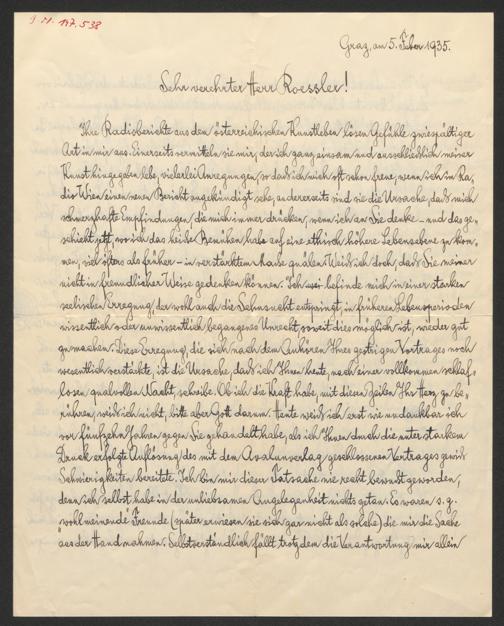 J. N. 147.538
Graz, am 5. Feber 1935.
Sehr verehrter Herr Roessler!
Ihre Radioberichte aus dem österreichischen Kunstleben lösen Gefühle zwiespältiger
Art in mir aus. Einerseits vermitteln sie mir, der ich ganz einsam und ausschließlich meiner
Kunst hingegeben lebe, vielerlei Anregungen, so daß ich mich oft schon freue, wenn ich im Ra-
dio Wien einen neuen Bericht angekündigt sehe, andererseits sind sie die Ursache, daß mich
schmerzhafte Empfindungen, die mich immer drücken, wenn ich an Sie denke – und das ge-
schieht jetzt, wo ich das heiße Bemühen habe auf eine ethisch höhere Lebensebene zu kom-
men, viel öfters als früher – in verstärktem Maße quälen. Weiß ich doch, daß Sie meiner
nicht in freundlicher Weise gedenken können. Ich befinde mich in einer starken
seelischen Erregung, der wohl auch die Sehnsucht entspringt, in früheren Lebensperioden
wissentlich oder unwissentlich begangenes Unrecht, soweit dies möglich ist, wieder gut
zu machen. Diese Erregung, die sich nach dem Anhören Ihres gestrigen Vortrages noch
wesentlich verstärkte, ist die Ursache, daß ich Ihnen heute, nach einer vollkommen schlaf-
losen qualvollen Nacht, schreibe. Ob ich die Kraft habe, mit diesen Zeilen Ihr Herz zu be-
rühren, weiß ich nicht, bitte aber Gott darum. Heute weiß ich erst wie undankbar ich
vor fünfzehn Jahren gegen Sie gehandelt habe, als ich Ihnen durch die unter starkem
Druck erfolgte Auflösung des mit dem Avalunverlag geschlossenen Vertrages gewiß
Schwierigkeiten bereitete. Ich bin mir dieser Tatsache nie recht bewußt geworden,
denn ich selbst habe in der unliebsamen Angelegenheit nichts getan. Es waren s. g.
wohlmeinende Freunde (später erwiesen sie sich gar nicht als solche) die mir die Sache
aus der Hand nahmen. Selbstverständlich fällt trotzdem die Verantwortung mir allein